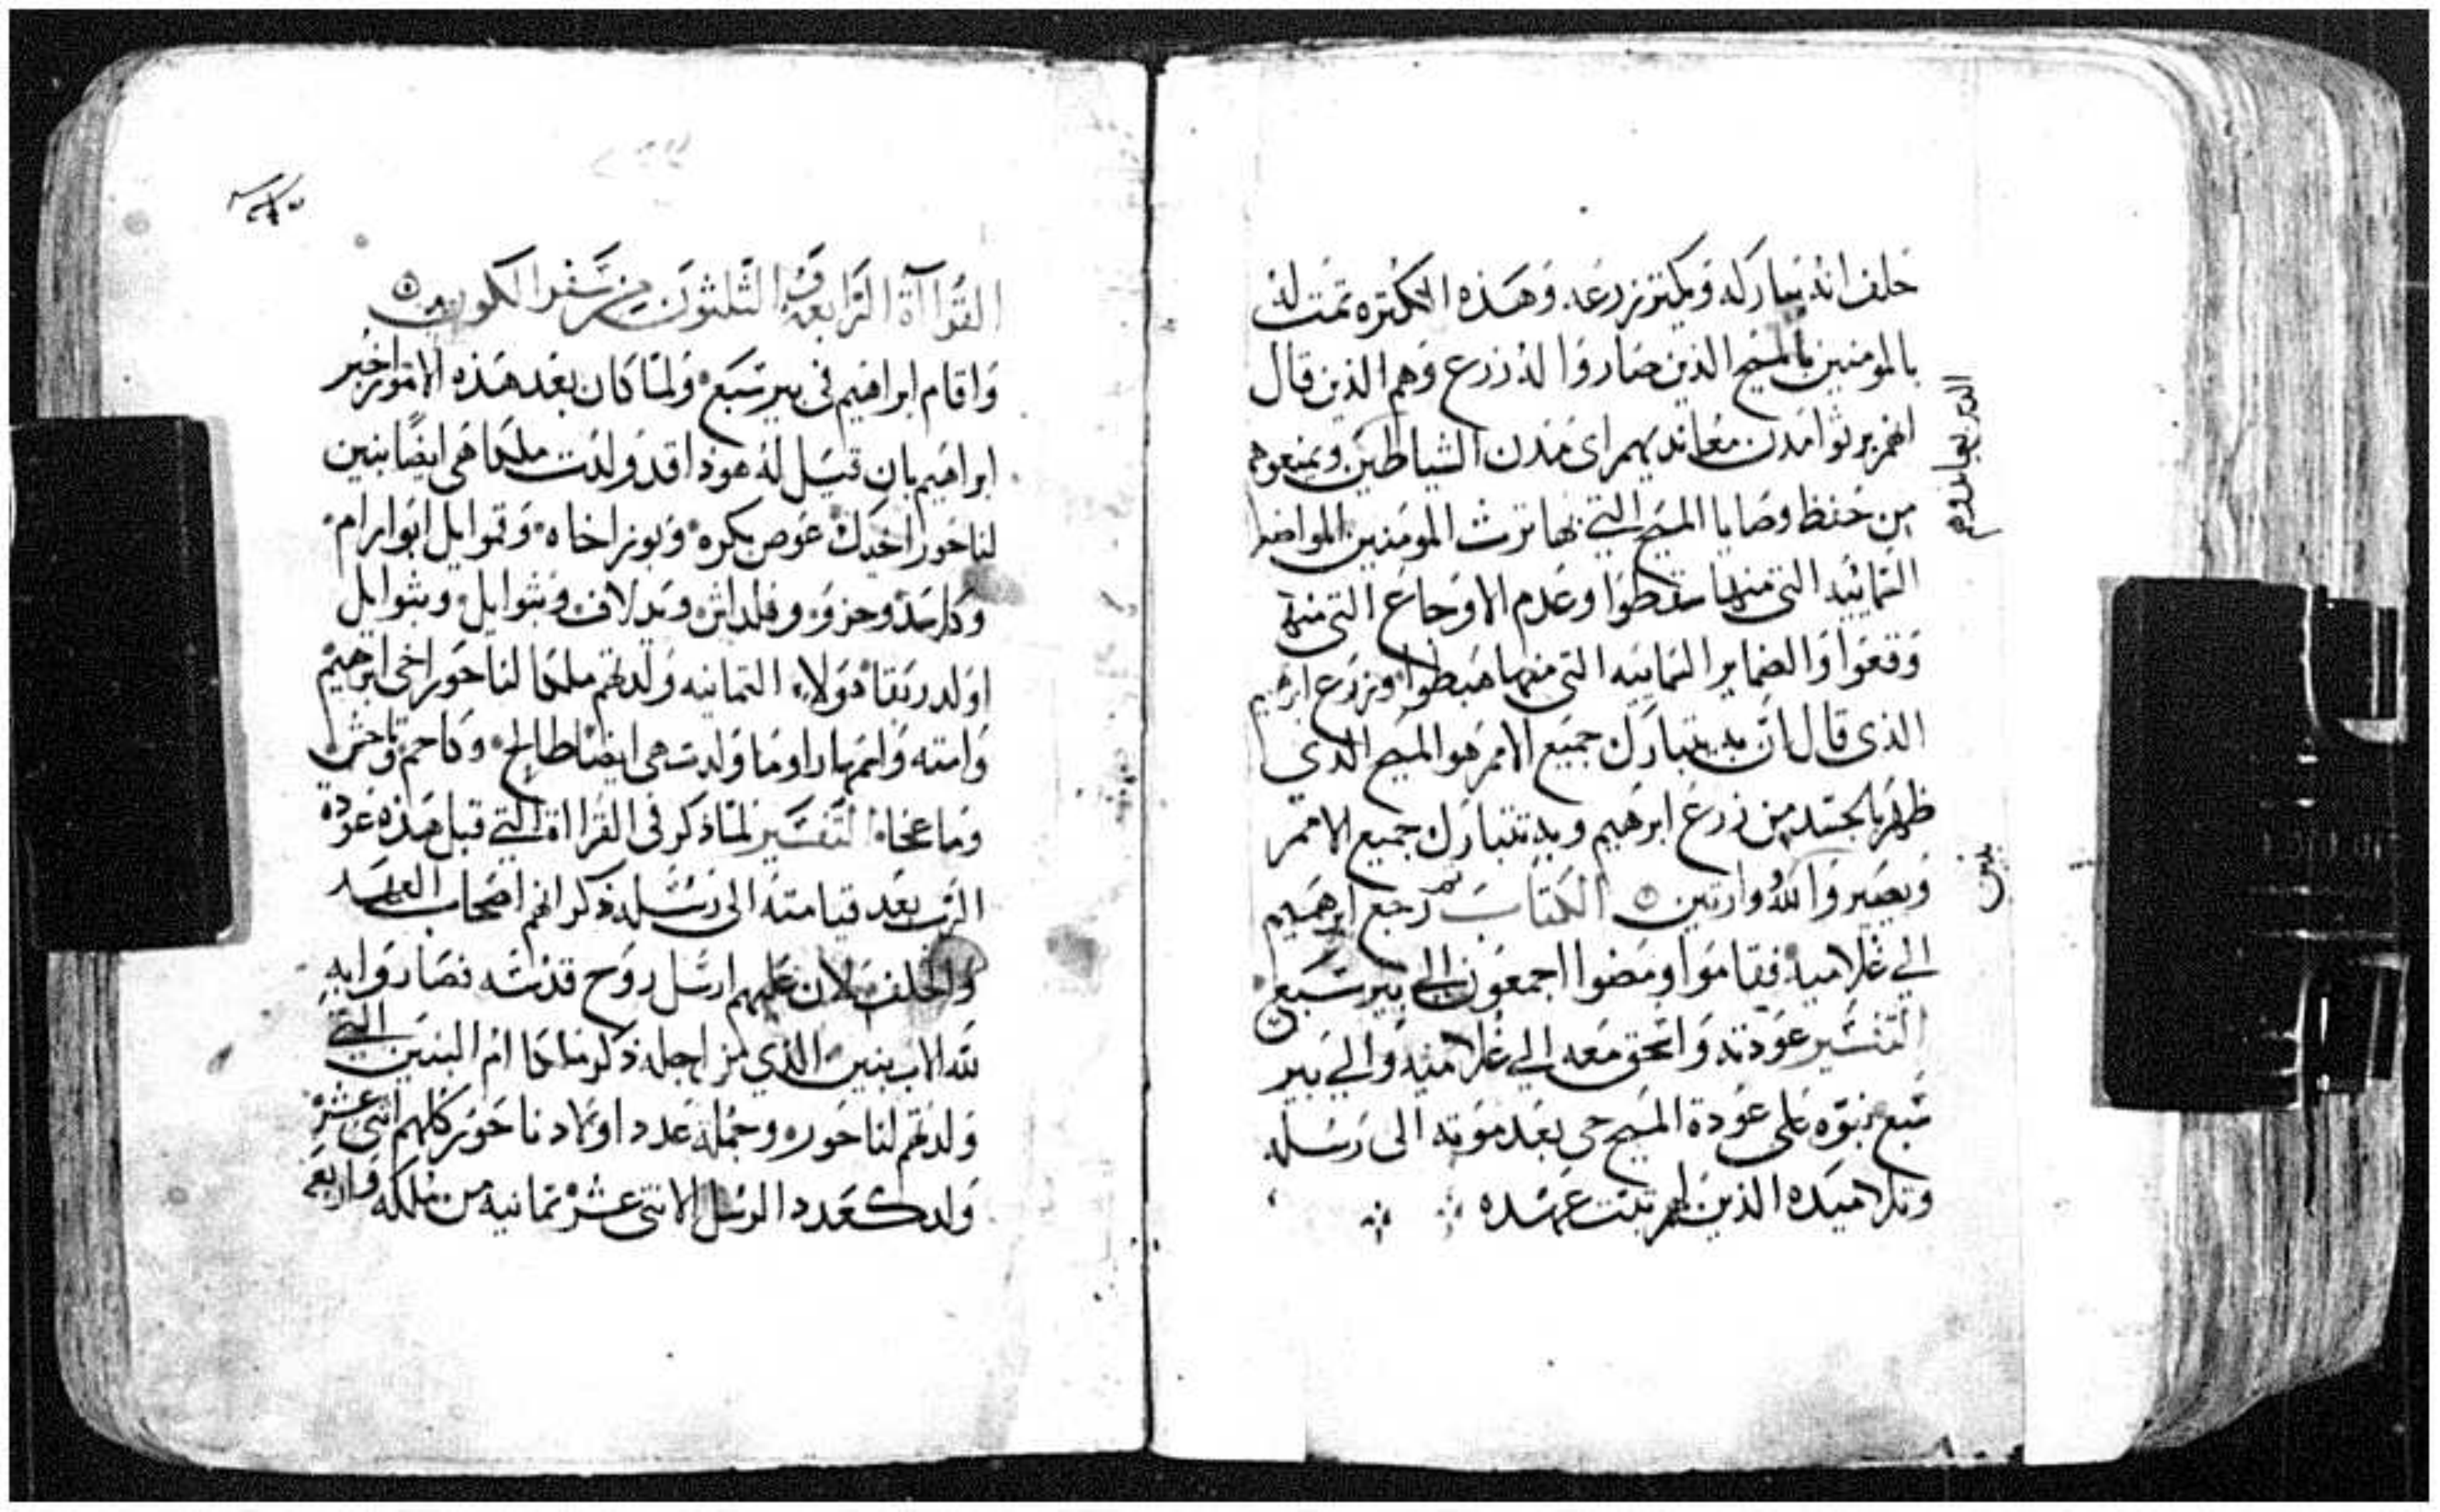 خلف انه يباركه ويكثر زرعه وهذه الكثره تمت له
بالمومنين بالمسيح الذين صاروا له زرع وهم الذين قال
انهم يرثوا مدن معانديهم اى مدن الشياطين ويمنعوهم
من حفظ وصايا المسيح التي بها ترث المومنين المواضع
التمانيه التي منها سقطوا وعدم الاوجاع التي منها
وقعوا والضماير التمانيه التي منها هبطوا وزرع ابرهيم
الذى قال ان به يتبارك جميع الامم هو المسيح الذي
ظهر بالجسد من زرع ابرهيم وبه تتبارك جميع الامم
ويصيروا لله وارتين الكتاب ثم رجع ابرهيم
الي غلاميه فقاموا ومضوا اجمعون الي بير سبع
التفسير عودته واسحق معه الي غلاميه والي بير
سبع نبوه على عودة المسيح حى بعد موته الى رسله
وتلاميده الذين لهم تبتت عهده
بنين
القراآة الرابعة والثلثون من سفر الكون
واقام ابراهيم فى بير سبع ولما كان بعد هذه الامور اخبر
ابراهيم بان قيل له هوذا قد ولدت ملكا هى ايضا بنين
لناحور اخيك عوص بكره وبوز اخاه وقموايل ابو ارام
وكاسد وحزو وفلداش ويدلاف وبتوايل وبتوايل
اولد ربقا هولاء التمانيه ولدتهم ملكا لناحور اخى ابرهيم
وامته واسمها راوما ولدت هى ايضا طالح وكاحم وتاحش
وماعخاه التفسير لما ذكر فى القرااة التي قبل هذه عودة
الرب بعد قيامته الى رسله ذكر انهم اصحاب العهد
والخلف لان عليهم ارسل روح قدسه فصاروا به
لله الاب بنين الذي من اجله ذكر ملكا ام البنين التي
ولدتهم لناحور وجملة عدد اولاد ناحور كلهم اتنى عشر
ولد كعدد الرسل الاتنى عشر تمانية من ملكه واربعه